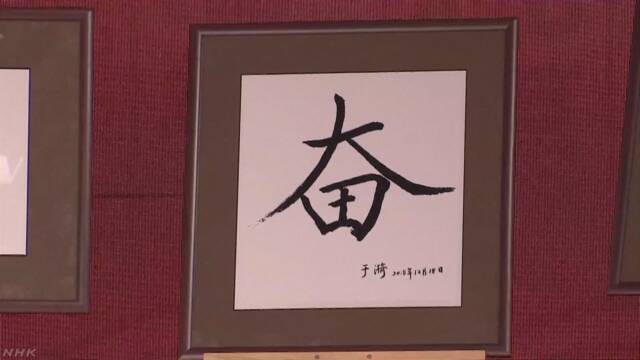 奋
于漪 2018年12月18日
NHK